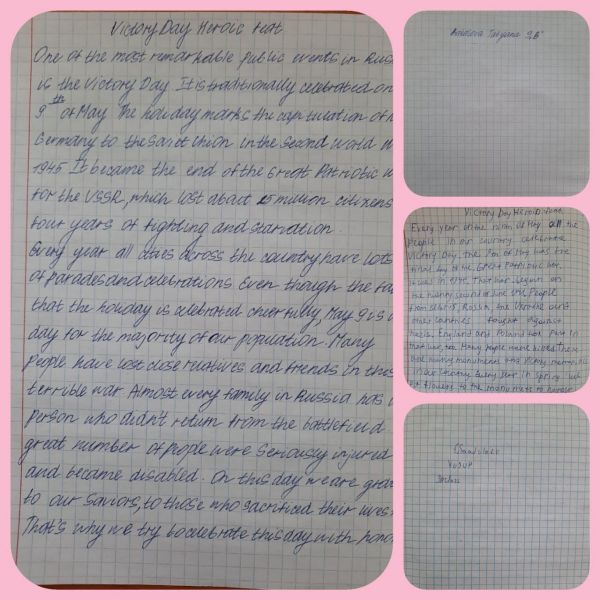 Victory Day Heroic feat
One of the most remarkable public events in Russ
is the Victory Day. It is traditionally celebrated on
9th of May. The holiday marks the capituation of
Germany to the Soviet Union in the Second world W
1945. It became the end of the Great Patriotic w
for the USSR, which lost about 25 million citizens
four years of fighting and starvation.
Every year all cities across the country have lots
of parades and celebrations. Even though the fa
that the holiday is celebrated cheerfully, May 9 is
day for the majority of our population. Many
people have lost close relatives and friends in this
terrible war. Almost every family in Russia has
person who didn't return from the battlefield.
great number of people were seriously injured
and became disabled. On this day we are grat
to our saviors, to those who sacrificed their lives
That's why we try to celebrate this day with hono
Tatyana 9"B"
Victory Day
Every year on the ninth of May all the
people in our country celebrate
Victory Day. The 9th of May was the
final day of the Great Patriotic War.
It was in 1945. That war began on
the twenty second of June 1941. People
from Russia, the Ukraine and
other countries fought against
Nazis. England and Poland too
that war, too. Many people were killed there
many monuments and victory
in our country. Every year in spring we
flowers to the monuments to